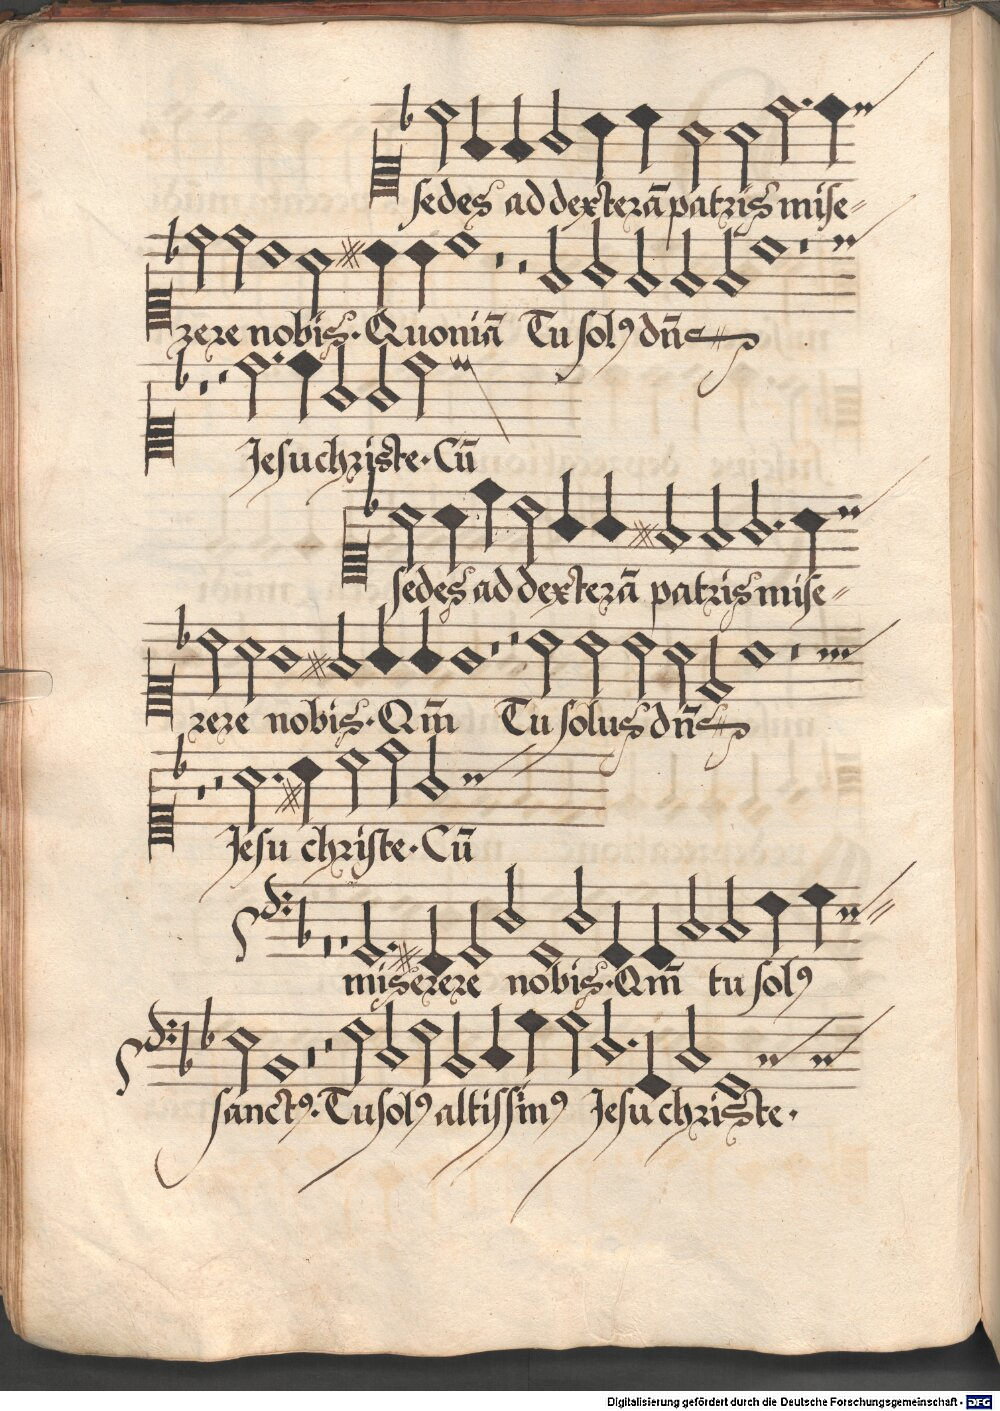 sedes ad dexterā patris mise=
rere nobis. Quoniā Tu solꝰ dn̄s
Jesu christe. Cū
sedes ad dexterā patris mise=
rere nobis. Qm̄ Tu solus dn̄s
Jesu christe. Cū
miserere nobis. Qm̄ tu solꝰ
sanctꝰ. Tu solꝰ altissimꝰ Jesu christe.
Digitalisierung gefördert durch die Deutsche Forschungsgemeinschaft - DFG